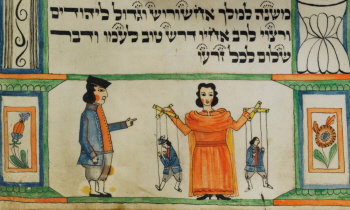 משנה למלך אחשורוש וגדול ליהודים
ורצוי לרב אחיו דרש טוב לעמו ודבר
שלום לכל זרעו